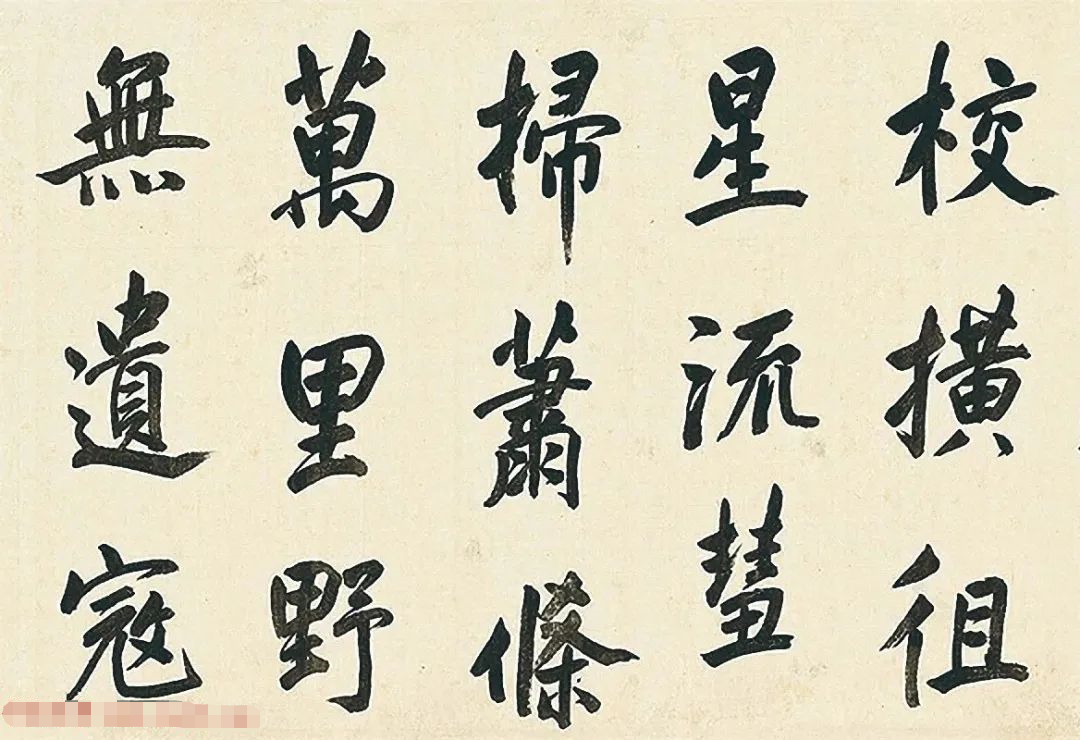 校撗徂
星流彗
掃蕭條
萬里野
無遺寇